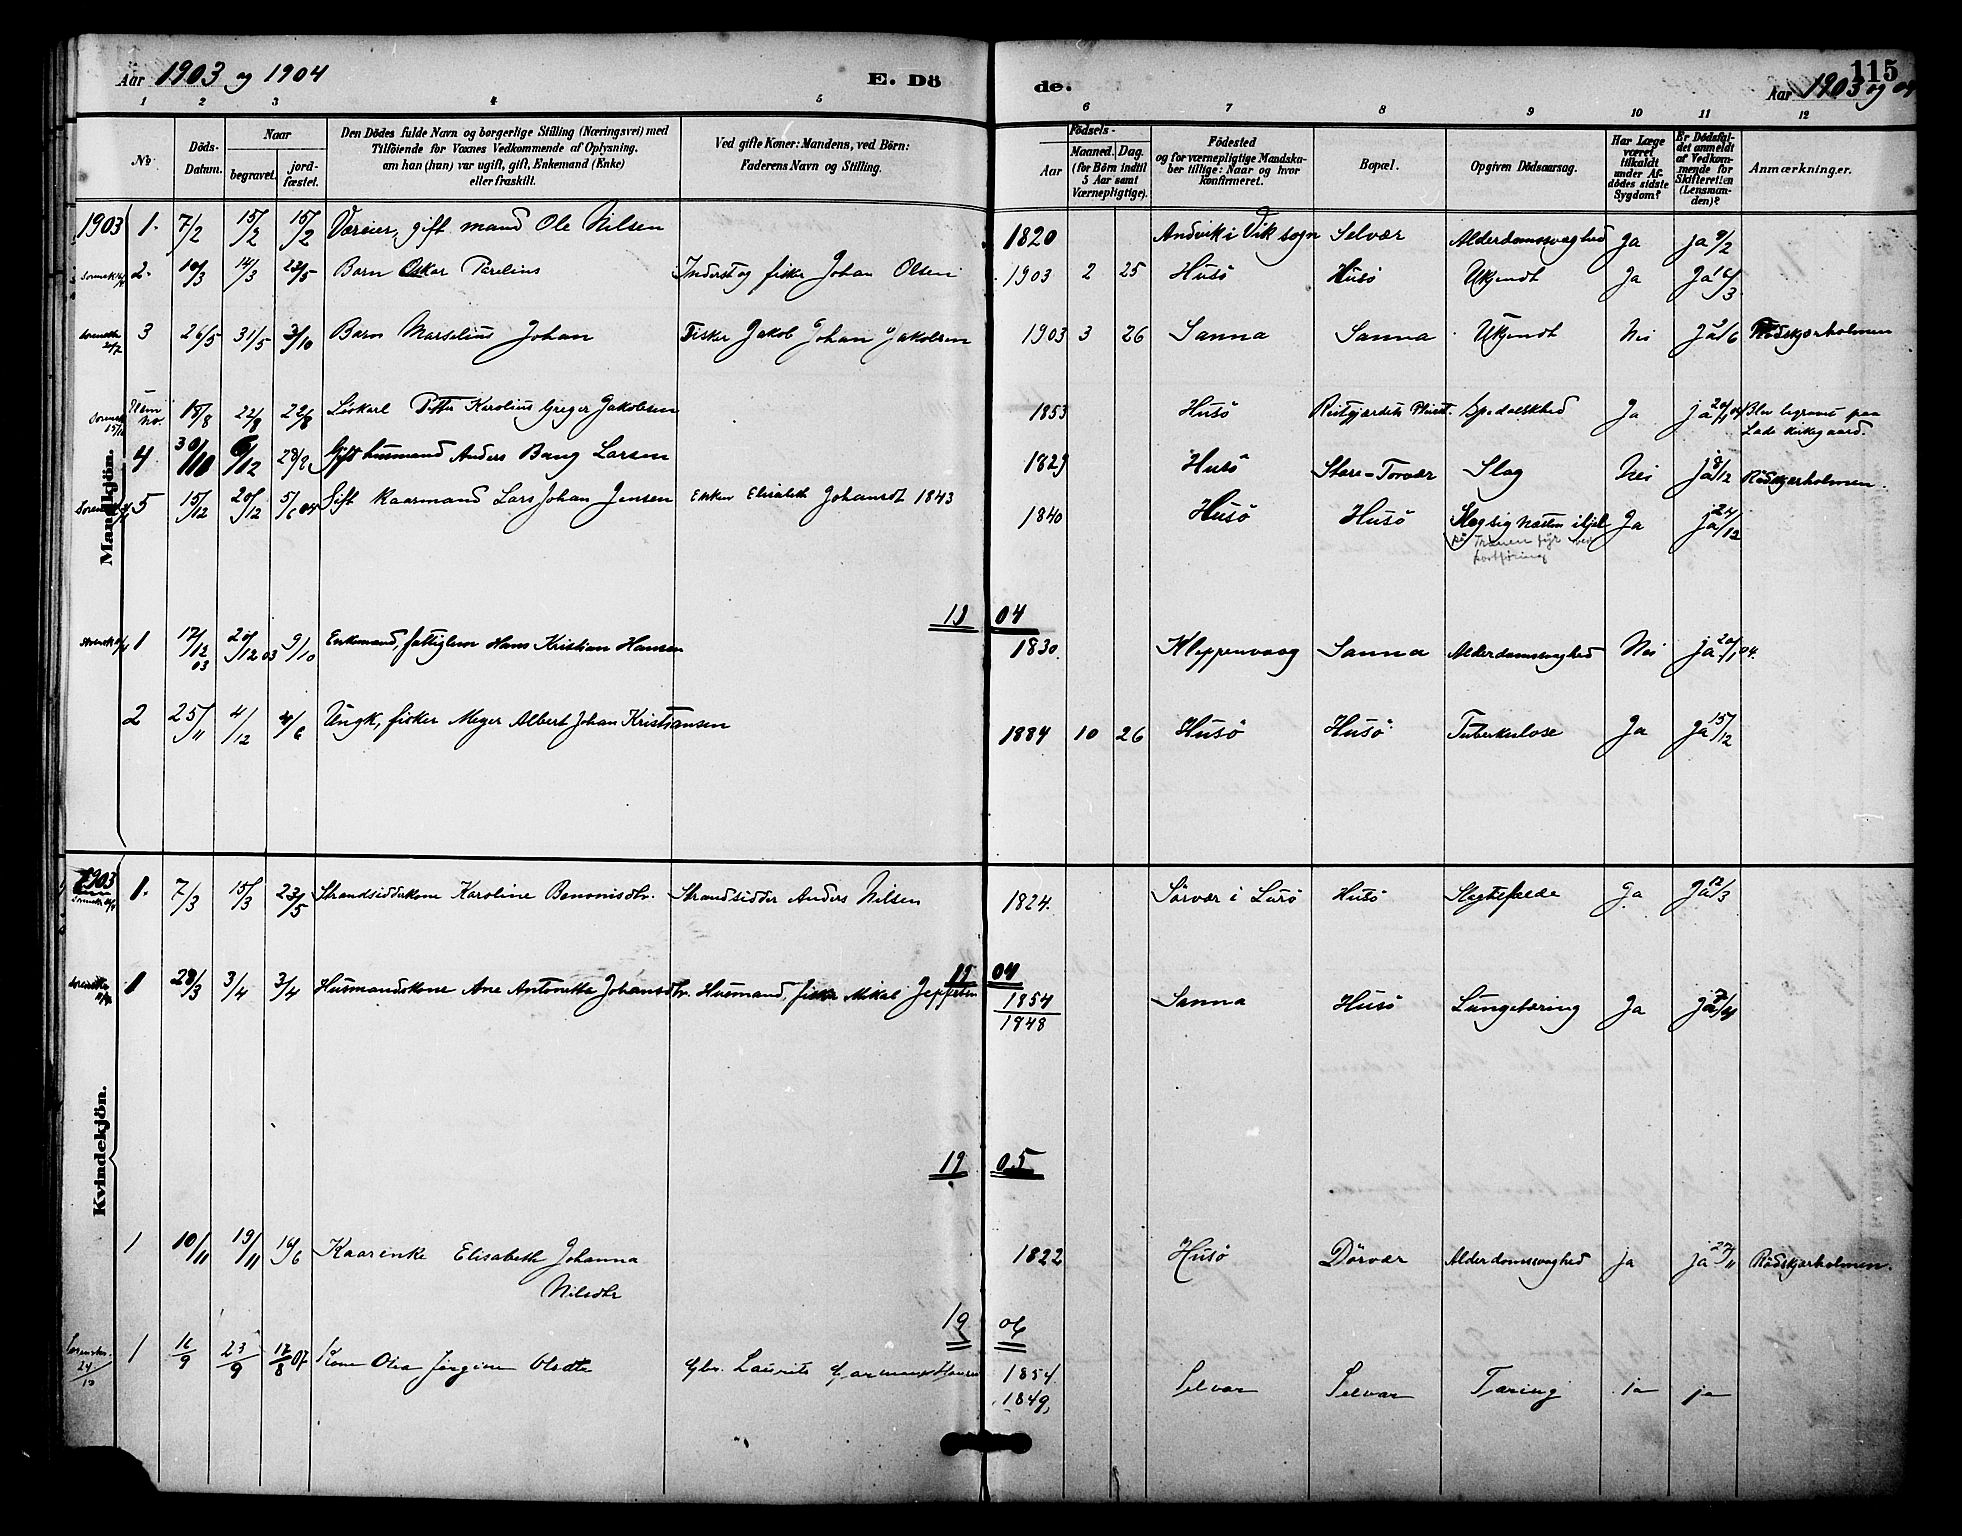 Aar 1903 og 1904
E. Dö
de.
115
Aar 1903 og 04
1 2 3 4 5 6 7 8 9 10 11 12
No
Döds-
Datum.
Naar
begravet.
jord-
fæstet.
Den Dödes fulde Navn og borgerlige Stilling (Næringsvei) med
Tilföiende for Voxnes Vedkommende af Oplysning,
om han (hun) var ugift, gift, Enkemand (Enke)
eller fraskilt.
Ved gifte Koner: Mandens, ved Börn:
Faderens Navn og Stilling.
Födsels-
Aar
Maaned. Dag.
(for Börn indtil
5 Aar samt
Værnepligtige).
Födested
og for værnepligtige Mandska-
ber tillige: Naar og hvor
konfirmeret.
Bopæl.
Opgiven Dödsaarsag.
Har Læge
været
tilkaldt
under Af-
dödes sidste
Sygdom?
Er Dödsfal-
det anmeldt
af Vedkom-
mende for
Skifteretten
(Lensman-
den)?
Anmærkninger.
Mandkjön.
1903 1. 7/2 15/2 15/2 Væreier, gift mand Ole Nilsen 1820 Andvik i Vik sogn Selvær Alderdomssvaghed Ja ja 9/2
2. 10/3 14/3 23/5 Barn Oskar Parelius Inderst og fisker Johan Olsen 1903 2 25 Husö Husö Ukjendt Ja Ja 16/3
3 26/5 31/5 3/10 Barn Marselius Johan Fisker Jakob Johan Jakobsen 1903 3 26 Sanna Sanna Ukjendt Nei Ja 2/6 Rödskjærholmen
18/8 22/8 22/8 Löskarl Petter Karolius Greger Jakobsen 1853 Husö Reitgjerdets Pleiest. Spedalskhed Ja ja 20/1 04 Blev begravet paa
Lade kirkegaard.
4 30/10 6/12 28/2 Gift husmand Anders Bang Larsen 1829 Husö Store-Torvær Slag Nei ja 8/12 Rödskjærholmen.
5 15/12 20/12 5/6 04 Gift kaarmand Lars Johan Jensen Enken Elisabeth Johansdt 1843 1840 Husö Husö Slog sig næsten ihjel Ja ja 24/12
på Trænen fyr ved
19 04
1 17/12 03 20/12 03 9/10 Enkemand, fattiglem Hans Kristian Hansen 1830. Kleppenvaag Sanna Alderdomssvaghed Nei ja 20/1 04.
2 25/11 4/12 4/6 Ungk, fisker Meyer Albert Johan Kristiansen 1884 10 26 Husö Husö Tuberkulose Ja Ja 15/12
Kvindekjön.
1903 1. 7/3 15/3 23/5 Strandsidderkone Karoline Benonisdtr. Strandsidder Anders Nilsen 1824. Sörvær i Lurö Husö Slagtilfælde Ja Ja 12/3
19 04
1 28/3 3/4 3/4 Husmandskone Ane Antonette Johansdtr. Husmand, fisker Mikal Jeppesen 1854 Sanna Husö Lungetæring Ja ja 7/4
1948
19 05
1 10/11 19/11 16/6 Kaarenke Elisabeth Johanna 1822 Husö Dörvær Alderdomssvaghed ja ja 27/11 Rödskjærholmen.
Nilsdtr
19 06
24/10 1 16/9 23/9 17/8 07 Kone Olea Jørgine Olsdtr Gbr. Laurits Hansen 1854 Selvær Selvær Tæring ja ja
1849,